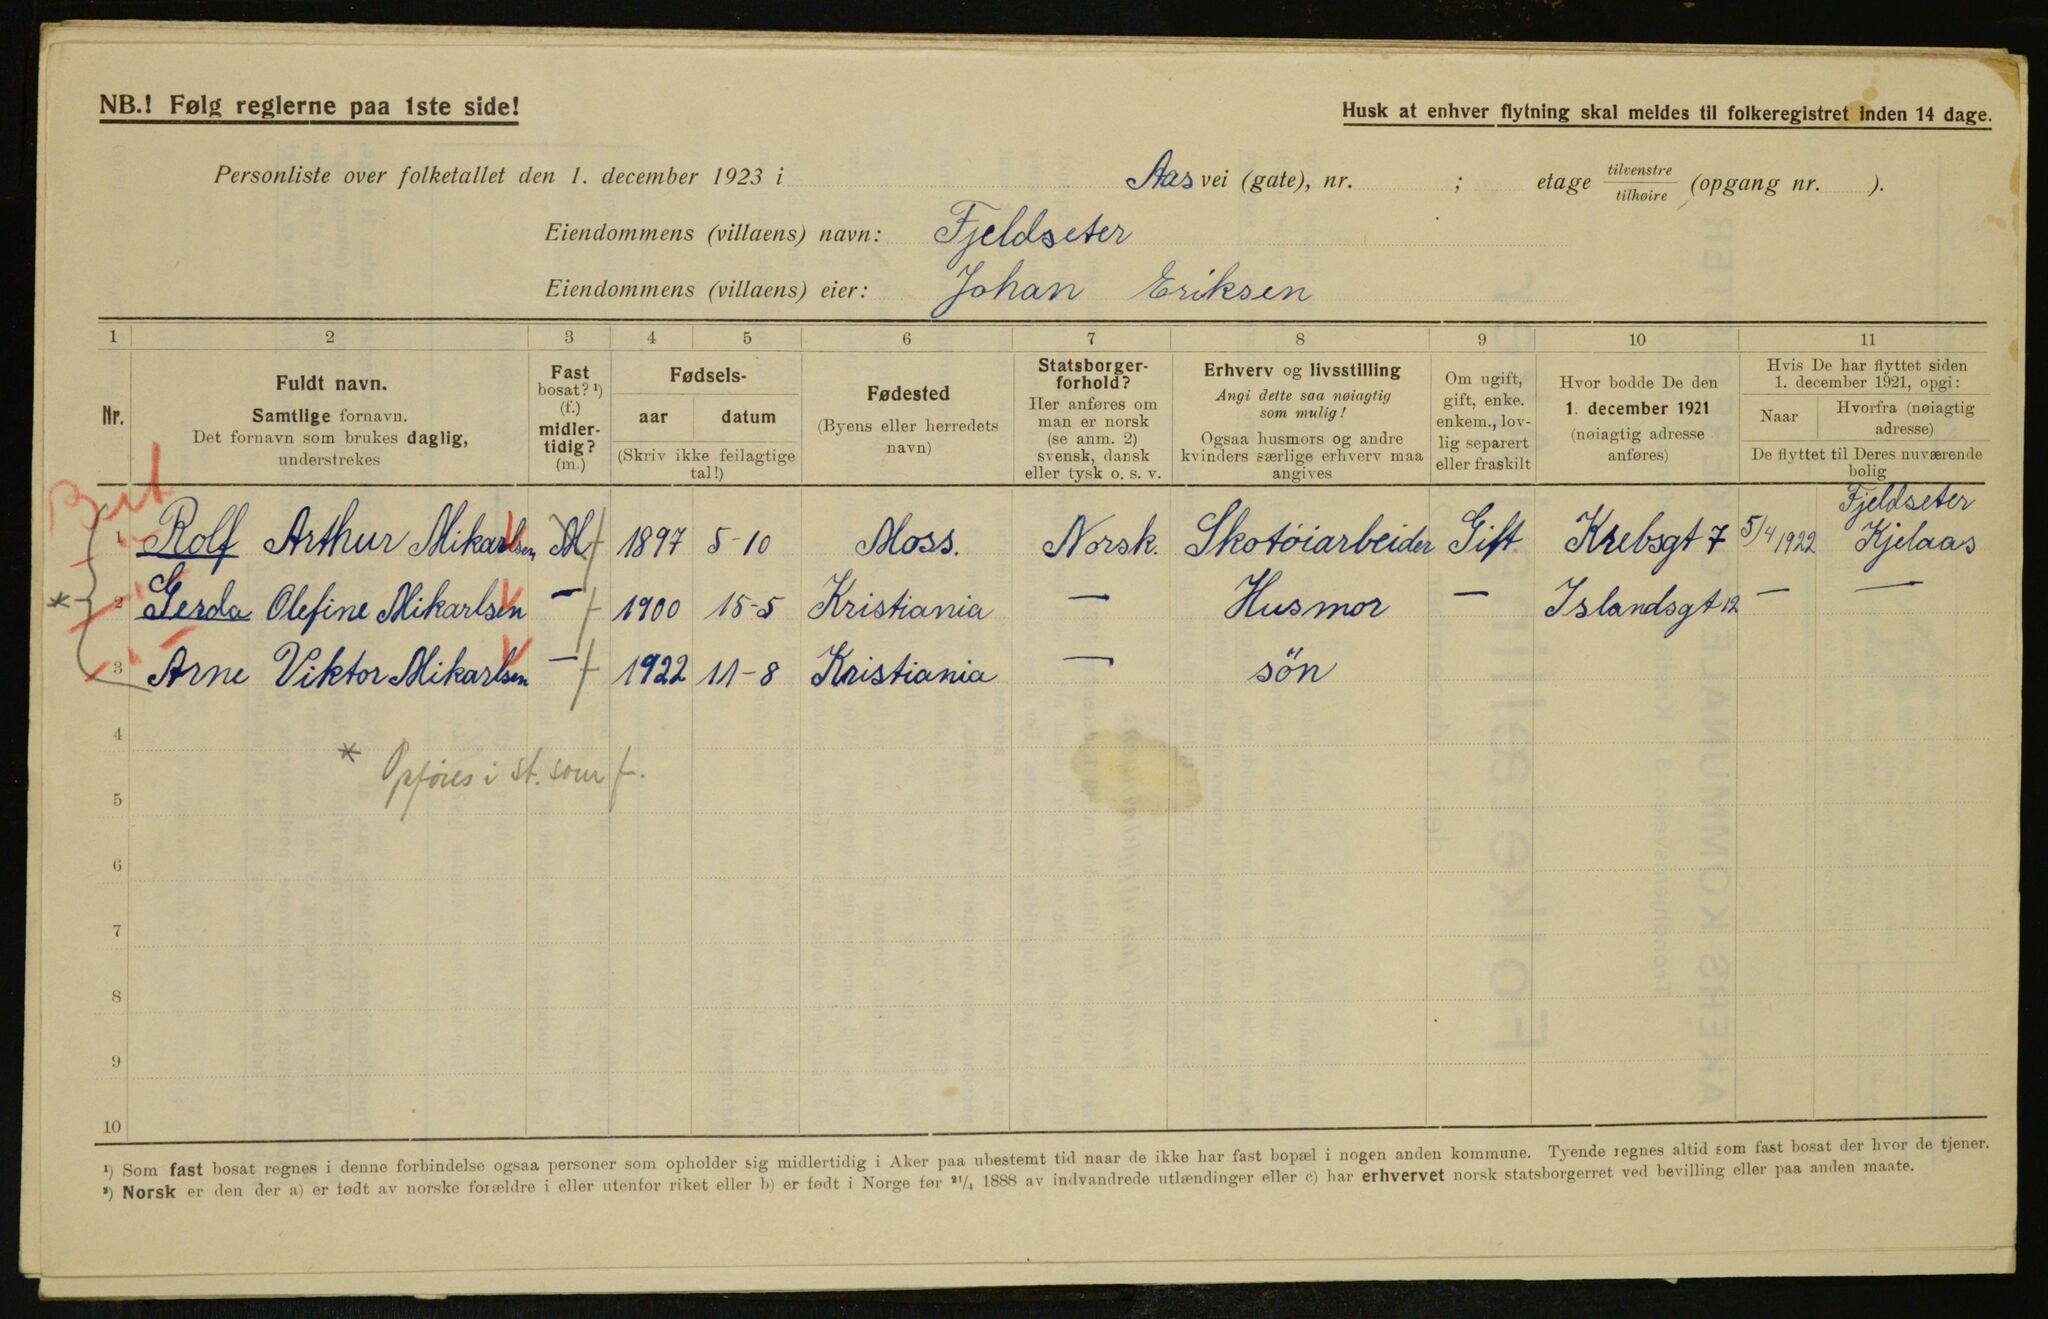 NB.! Følg reglerne paa 1ste side!
Husk at enhver flytning skal meldes til folkeregistret inden 14 dage.
Personliste over folketallet den 1. december 1923 i Aas vei (gate), nr. ; etage tilvenstre / tilhøire (opgang nr. ).
Eiendommens (villaens) navn: Fjeldseter
Eiendommens (villaens) eier: Johan Eriksen
1 2 3 4 5 6 7 8 9 10 11
Nr.
Fuldt navn.
Samtlige fornavn.
Det fornavn som brukes daglig,
understrekes
Fast
bosat? ¹)
(f.)
midler-
tidig?
(m.)
Fødsels-
aar datum
(Skriv ikke feilagtige
tal!)
Fødested
(Byens eller herredets
navn)
Statsborger-
forhold?
Her anføres om
man er norsk
(se anm. 2)
svensk, dansk
eller tysk o. s. v.
Erhverv og livsstilling
Angi dette saa nøiagtig
som mulig!
Ogsaa husmors og andre
kvinders særlige erhverv maa
angives
Om ugift,
gift, enke.
enkem., lov-
lig separert
eller fraskilt
Hvor bodde De den
1. december 1921
(nøiagtig adresse
anføres)
Hvis De har flyttet siden
1. december 1921, opgi:
Naar Hvorfra (nøiagtig
adresse)
De flyttet til Deres nuværende
bolig
Fjeldseter
1 Rolf Arthur Mikarlsen M f 1897 5-10 Moss. Norsk. Skotøiarbeider Gift Krebsgt 7 5/4 1922 Kjelaas
* 2 Gerda Olefine Mikarlsen — f 1900 15-5 Kristiania — Husmor — Islandsgt 12 — —
3 Arne Viktor Mikarlsen — f 1922 11-8 Kristiania — søn
4
* Opføres i st. som f.
5
6
7
8
9
10
¹) Som fast bosat regnes i denne forbindelse ogsaa personer som opholder sig midlertidig i Aker paa ubestemt tid naar de ikke har fast bopæl i nogen anden kommune. Tyende regnes altid som fast bosat der hvor de tjener.
²) Norsk er den der a) er født av norske forældre i eller utenfor riket eller b) er født i Norge før ²¹/₄ 1888 av indvandrede utlændinger eller c) har erhvervet norsk statsborgerret ved bevilling eller paa anden maate.